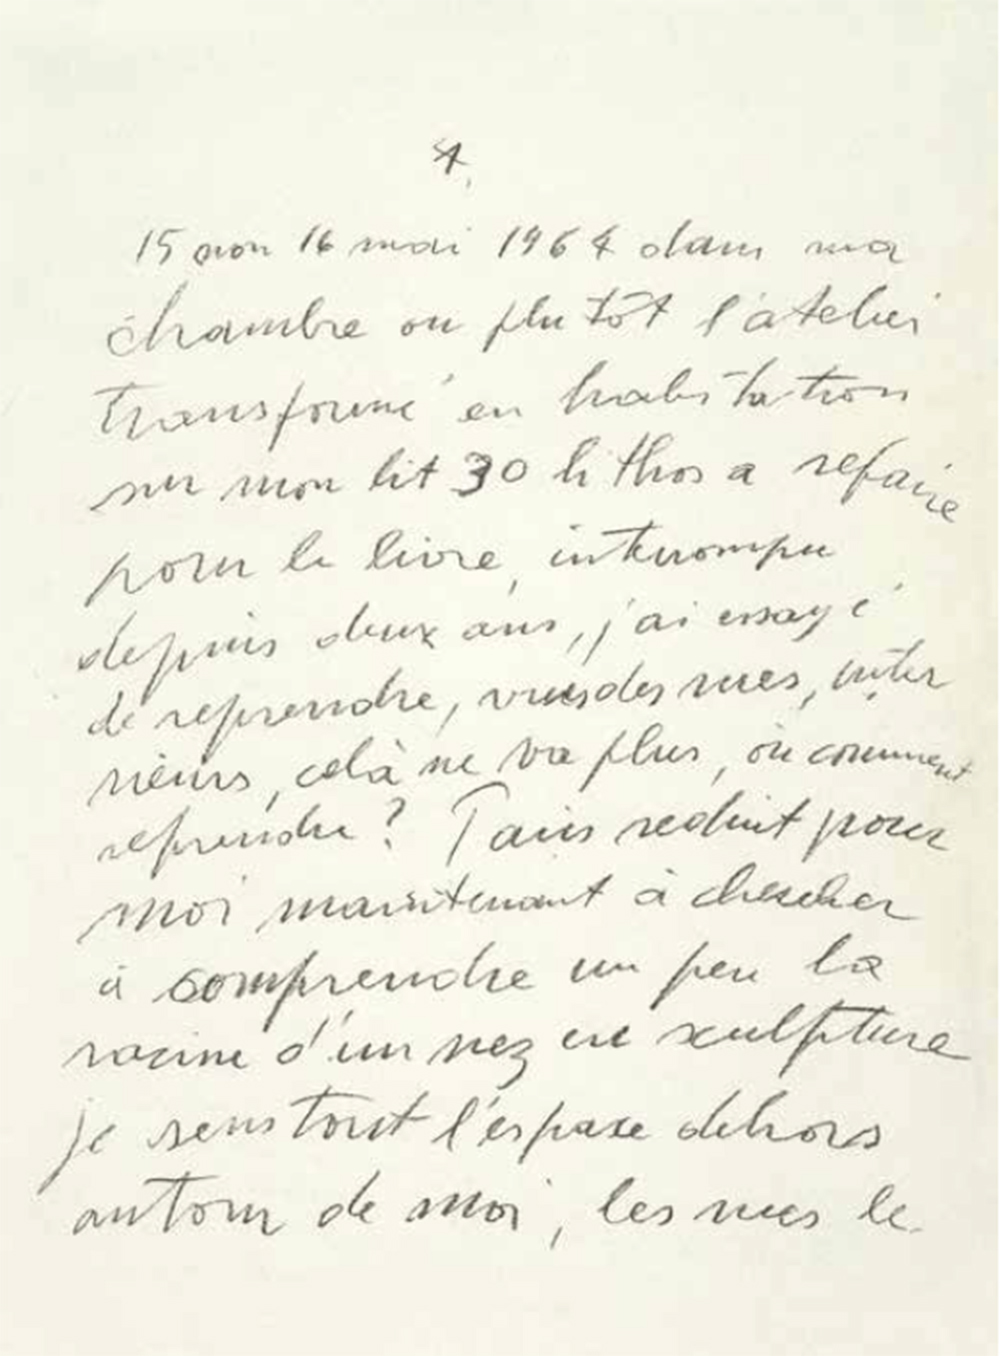 4.
15 non 16 mai 1964 dans ma
chambre ou plutôt l'atelier
transformé en habitation
sur mon lit 30 lithos a refaire
pour le livre, interrompu
depuis deux ans, j'ai essayé
de reprendre, vues des rues, inter
rieurs, celà ne va plus, où comment
reprendre? Paris reduit pour
moi maintenant à chercher
à comprendre un peu la
racine d'un nez en sculpture
je sens tout l'espace dehors
autour de moi, les rues le